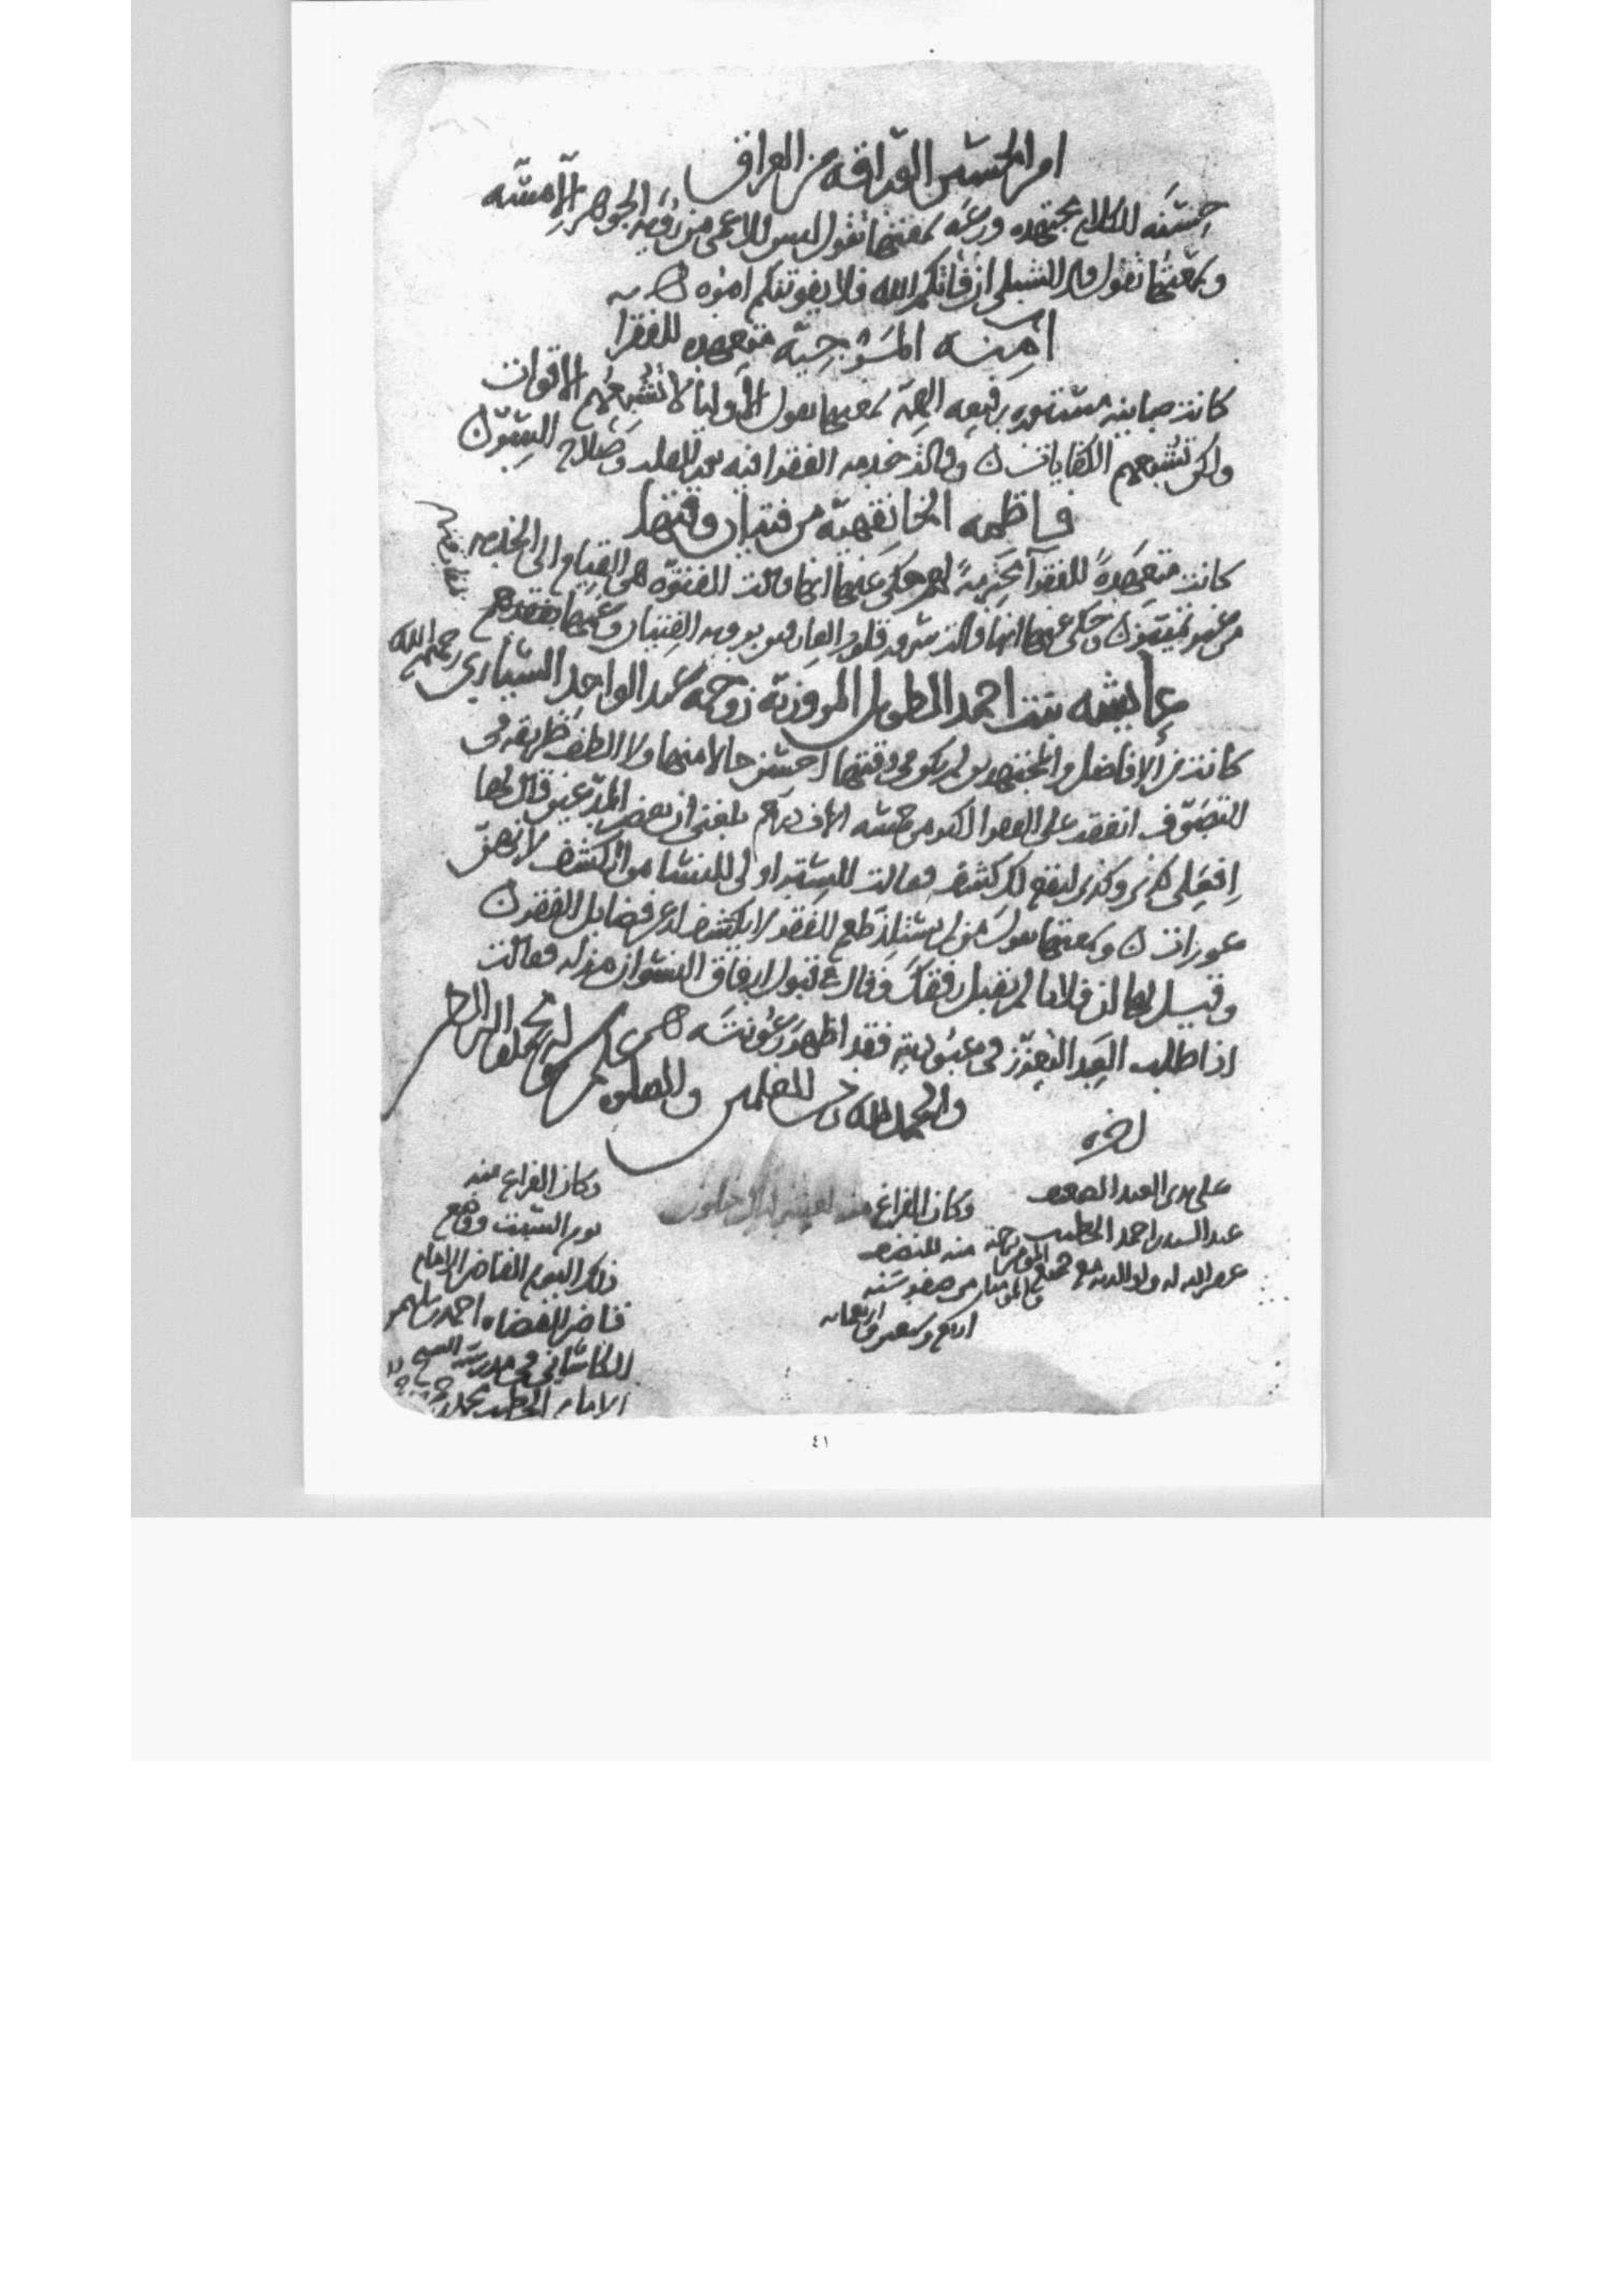 ام الحسين القرافه من العراق
حسنه الكلام مجتهده ورعه سمعتها تقول ليس للاعمى من رؤيه الجوهر الا مسه
وسمعتها تقول قال الشبلي ان فاتكم الله فلا يفوتنكم امره
امنه المرجيه متعهده للفقرا
كانت صاينه مستوره رفيعه الهمة سمعتها تقول الاوليا لا تشبعهم الاقوات
ولكن تشبعهم الكفايات وقالت خدمه الفقرا فيه نور القلب وصلاح السر
فاطمه الخانقهيه من فتيان وقتها
كانت متعهدة للفقرآ حكي عنها انها قالت الفتوه هي القيام الى الخدمه
من غير تمييز وحكي عنها انها قالت سرور قلوب العارفين برويه الفتيان وغمها بفقدهم
عايشه بنت احمد الطويل المروزية زوجه عبد الواحد السياري رحمهم الله
كانت من الافاضل والمجتهدين لم يكن في وقتها احسن حالا منها ولا الطف طريقه في
التصوف انفقت على الفقرا اكثر من خمسه الاف درهم بلغني ان بعض المدعين قال لها
افعلي كذي وكذي ليقع لك كشف فقالت الستر اولى للنسا من الكشف لانهن
عورات وسمعتها تقول من لم يستلذ طعم الفقر لا يكشف له عن فضايل الفقر
وقيل لها ان فلانا لم يقبل رفقك وقال في قبول ارفاق النسوان مذله فقالت
اذا طلب العبد التعزز في عبوديته فقد اظهر رعونته
والحمد لله رب العلمين والصلوه على رسوله محمد واله الطاهرين
اخره
على يدي العبد الضعيف
عبد السيد بن احمد الخطيب
غفر الله له ولوالديه ولجميع المومنين والمومنات
وكان الفراغ منه لعشر ليال خلون
من صفر سنه
اربع وسبعين واربعمايه
وكان الفراغ منه
يوم السبت ووقع
ذلك اليوم القاضي الامام
قاضي القضاه احمد بن سليمن
الكاشاني في مدرسة الشيخ
الامام الخطيب محمد
٤١